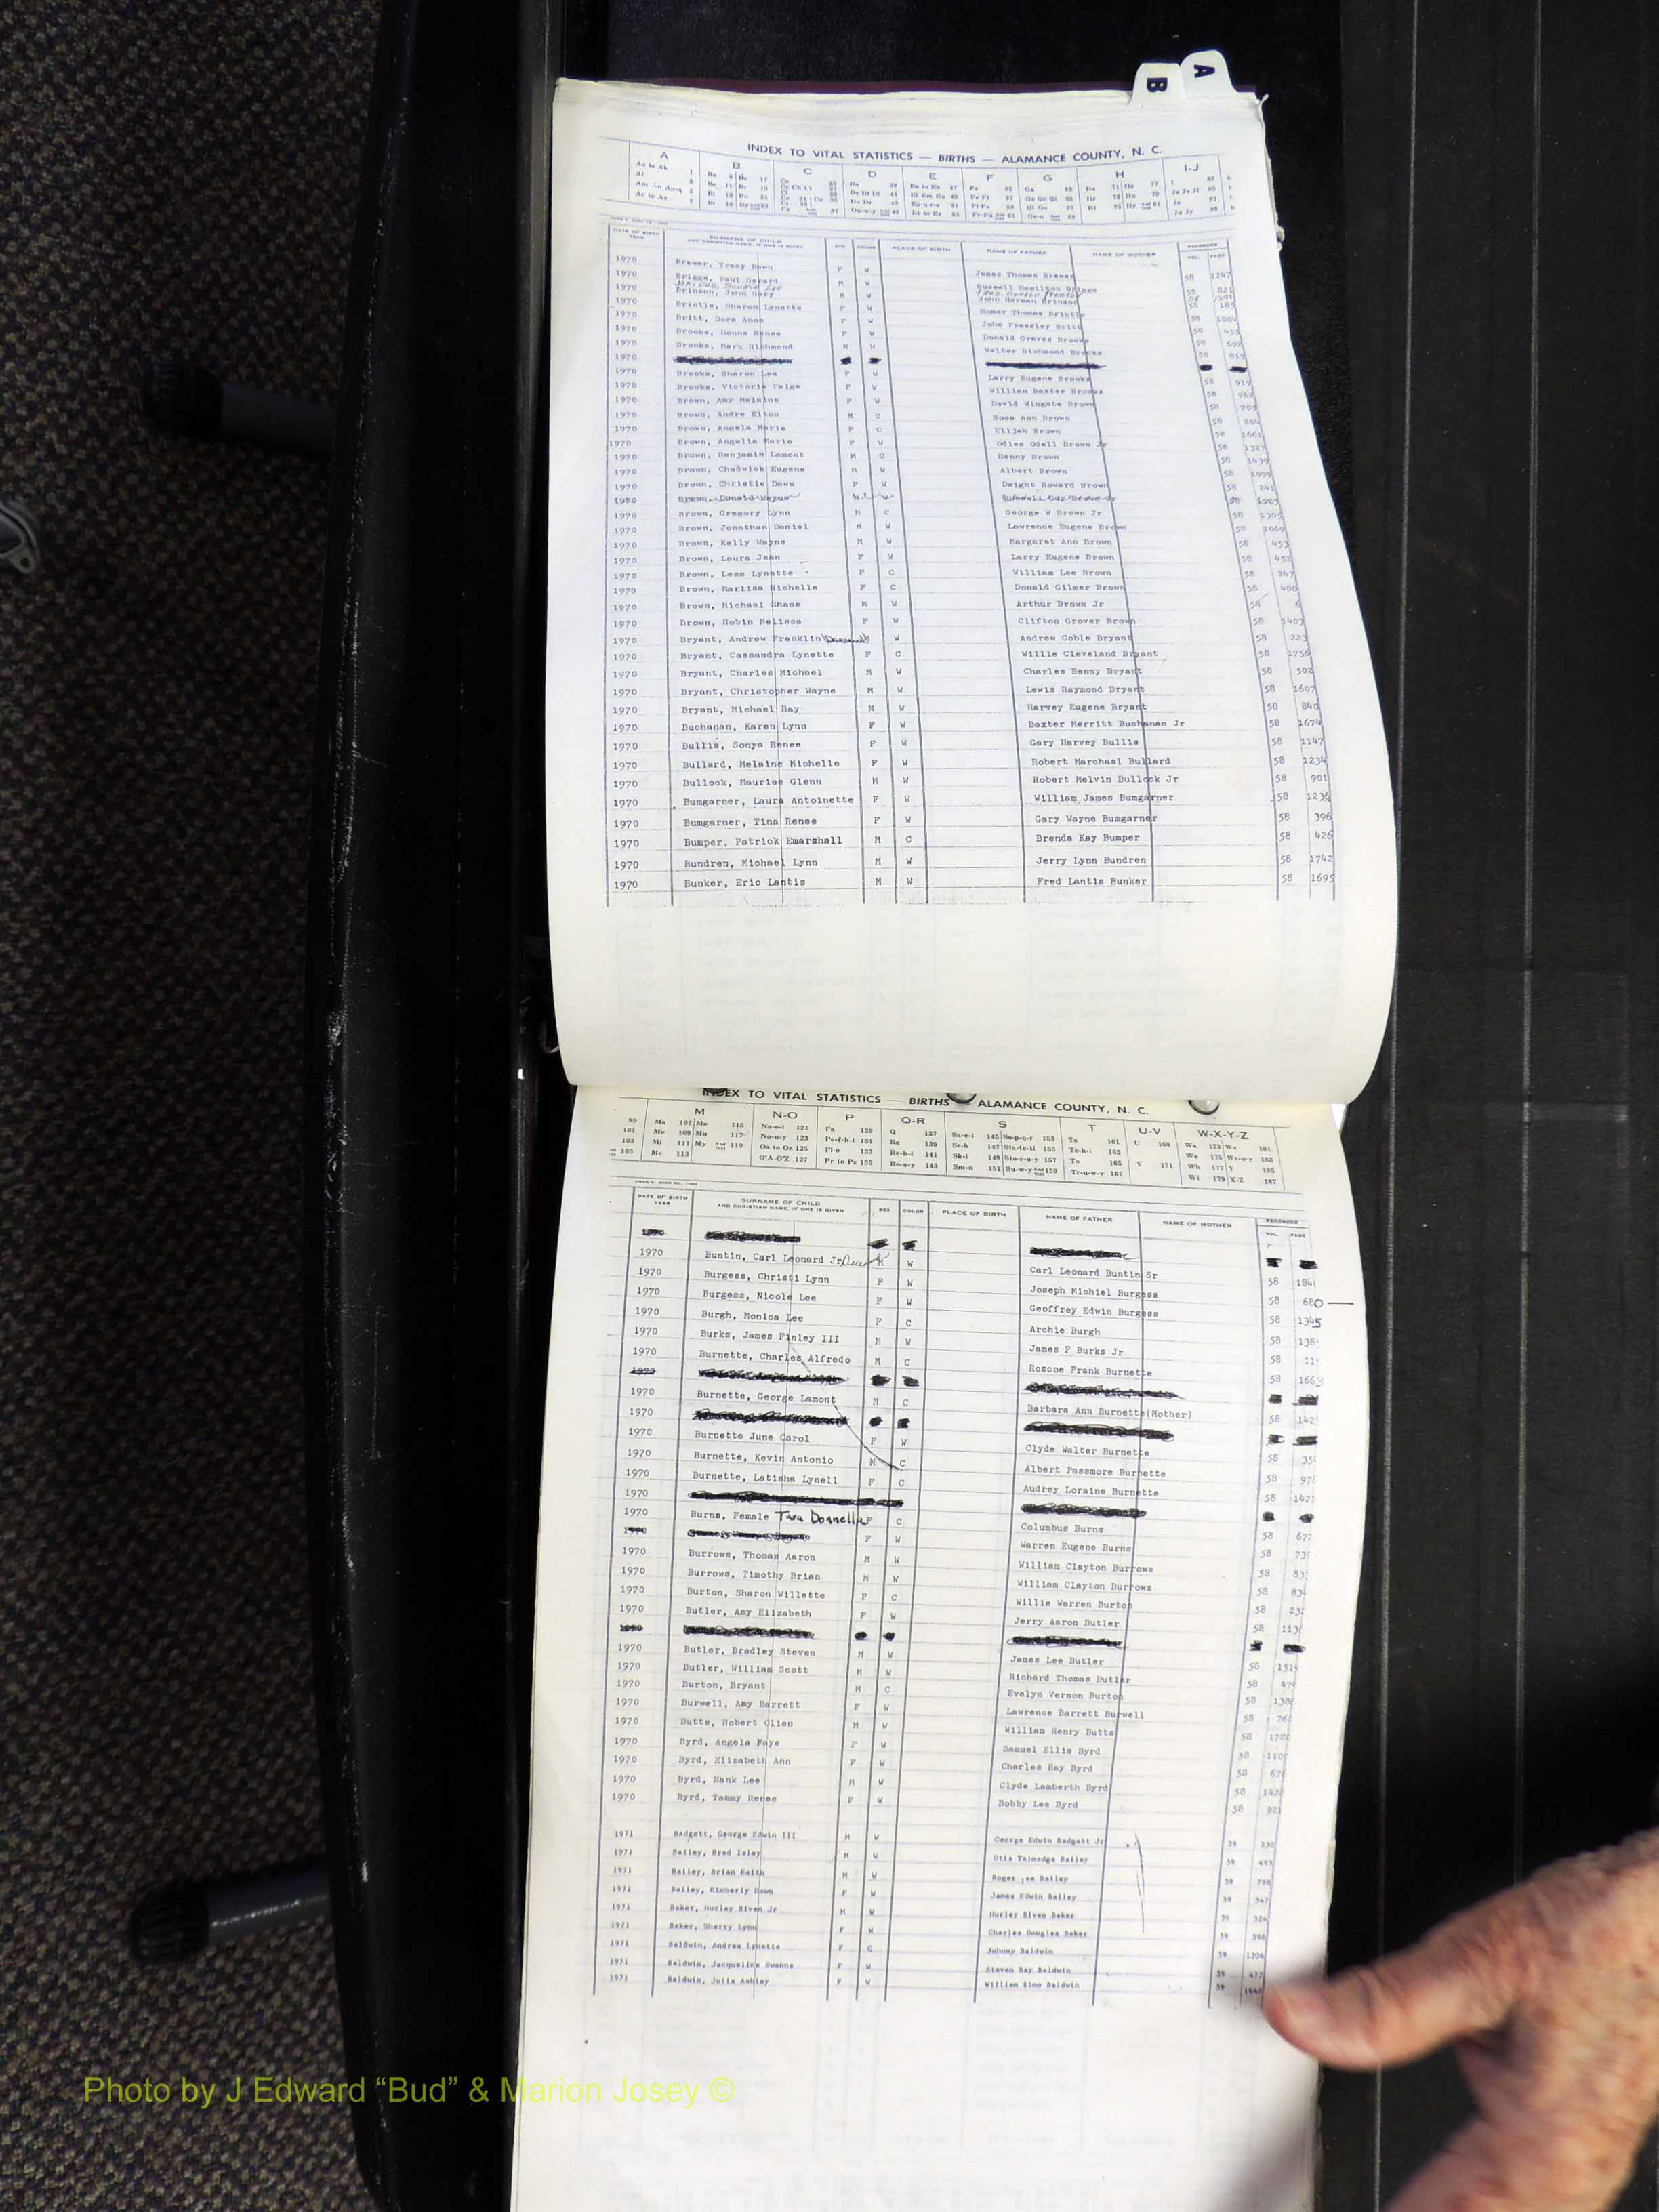 A
B
INDEX TO VITAL STATISTICS — BIRTHS — ALAMANCE COUNTY, N. C.
A B C D E F G H I-J
DATE OF BIRTH YEAR SURNAME OF CHILD AND CHRISTIAN NAME, IF ONE IS GIVEN SEX COLOR PLACE OF BIRTH NAME OF FATHER NAME OF MOTHER RECORDED VOL. PAGE
1970 Brewer, Tracy Dawn F W James Thomas Brewer 58 1247
1970 Briggs, Paul Gerard M W Russell Hamilton Briggs 58 821
1970 Brinson, John Gary M W John Herman Brinson 58 185
1970 Bristle, Sharon Lynette F W Homer Thomas Bristle 58
1970 Britt, Dora Anne F W John Pressley Britt 58
1970 Brooks, Donna Renee F W Donald Graves Brooks 58 692
1970 Brooks, Mark Richmond M W Walter Richmond Brooks 58 819
1970
1970 Brooks, Sharon Lea F W Larry Eugene Brooks 58 919
1970 Brooks, Victoria Paige F W William Baxter Brooks 58 962
1970 Brown, Amy Melaine F W David Wingate Brown 58 705
1970 Brown, Andre Elton M C Rosa Ann Brown 58 204
1970 Brown, Angela Marie F C Elijah Brown 58 1661
1970 Brown, Angelia Marie F W Odies Odell Brown Jr 58 1327
1970 Brown, Benjamin Lamont M C Benny Brown 58 1439
1970 Brown, Chadwick Eugene M W Albert Brown 58 1099
1970 Brown, Christie Dawn F W Dwight Howard Brown 58 241
1970 Brown, Donald Wayne M W 58 1525
1970 Brown, Gregory Lynn M C George W Brown Jr 58 1305
1970 Brown, Jonathan Daniel M W Lawrence Eugene Brown 58 1069
1970 Brown, Kelly Wayne M W Margaret Ann Brown 58 453
1970 Brown, Laura Jean F W Larry Eugene Brown 58 452
1970 Brown, Lesa Lynette F C William Lee Brown 58 247
1970 Brown, Marlisa Michelle F C Donald Gilmer Brown 58 400
1970 Brown, Michael Shane M W Arthur Brown Jr 58 6
1970 Brown, Robin Melissa F W Clifton Grover Brown 58 1403
1970 Bryant, Andrew Franklin Deceased M W Andrew Coble Bryant 58 223
1970 Bryant, Cassandra Lynette F C Willie Cleveland Bryant 58 1756
1970 Bryant, Charles Michael M W Charles Benny Bryant 58 502
1970 Bryant, Christopher Wayne M W Lewis Raymond Bryant 58 1607
1970 Bryant, Michael Ray M W Harvey Eugene Bryant 58 840
1970 Buchanan, Karen Lynn F W Baxter Merritt Buchanan Jr 58 1674
1970 Bullis, Sonya Renee F W Gary Harvey Bullis 58 1147
1970 Bullard, Melaine Michelle F W Robert Marchasl Bullard 58 1234
1970 Bullock, Maurice Glenn M W Robert Melvin Bullock Jr 58 901
1970 Bumgarner, Laura Antoinette F W William James Bumgarner 58 1236
1970 Bumgarner, Tina Renee F W Gary Wayne Bumgarner 58 396
1970 Bumper, Patrick Emarshall M C Brenda Kay Bumper 58 426
1970 Bundren, Michael Lynn M W Jerry Lynn Bundren 58 1742
1970 Bunker, Eric Lantis M W Fred Lantis Bunker 58 1695
INDEX TO VITAL STATISTICS — BIRTHS ALAMANCE COUNTY, N. C.
M N-O P Q-R S T U-V W-X-Y-Z
99 Ma 107 Mo 115 Na-e-i 121 Pa 129 Q 137 Sa-e-i 145 Su-p-q-r 153 Ta 161 U 169 Wa 173 Wo 181
101 Me 109 Mu 117 No-u-y 123 Pe-f-h-i 131 Re 139 Sc-h 147 Sta-te-ti 155 Te-h-i 163 We 175 Wr-u-y 183
103 Mi 111 My 119 Oa to Oz 125 Pl-o 133 Re-h-i 141 Sk-l 149 Sto-r-u-y 157 To 165 V 171 Wh 177 Y 185
105 Mc 113 O'A-O'Z 127 Pr to Pz 135 Ro-u-y 143 Sm-n 151 Su-w-y 159 Tr-u-w-y 167 Wi 179 X-Z 187
DATE OF BIRTH YEAR SURNAME OF CHILD AND CHRISTIAN NAME, IF ONE IS GIVEN SEX COLOR PLACE OF BIRTH NAME OF FATHER NAME OF MOTHER RECORDED VOL. PAGE
1970
1970 Buntin, Carl Leonard Jr M W Carl Leonard Buntin Sr 58 184
1970 Burgess, Christi Lynn F W Joseph Michiel Burgess 58 680
1970 Burgess, Nicole Lee F W Geoffrey Edwin Burgess 58 1345
1970 Burgh, Monica Lee F C Archie Burgh 58 138
1970 Burks, James Finley III M W James F Burks Jr 58 11
1970 Burnette, Charles Alfredo M C Roscoe Frank Burnette 58 1663
1970
1970 Burnette, George Lamont M C Barbara Ann Burnette(Mother) 58 142
1970
1970 Burnette June Carol F W Clyde Walter Burnette 58 35
1970 Burnette, Kevin Antonio M C Albert Passmore Burnette 58 97
1970 Burnette, Latisha Lynell F C Audrey Loraine Burnette 58 142
1970
1970 Burns, Female Tara Donnella F C Columbus Burns 58 67
1970 F W Warren Eugene Burns 58 73
1970 Burrows, Thomas Aaron M W William Clayton Burrows 58 83
1970 Burrows, Timothy Brian M W William Clayton Burrows 58 83
1970 Burton, Sharon Willette F C Willie Warren Burton 58 23
1970 Butler, Amy Elizabeth F W Jerry Aaron Butler 58 113
1970
1970 Butler, Bradley Steven M W James Lee Butler 58 151
1970 Butler, William Scott M W Richard Thomas Butler 58 47
1970 Burton, Bryant M C Evelyn Vernon Burton 58 138
1970 Burwell, Amy Barrett F W Lawrence Barrett Burwell 58 76
1970 Butts, Robert Olien M W William Henry Butts 58 178
1970 Byrd, Angela Faye F W Samuel Ellis Byrd 58 110
1970 Byrd, Elizabeth Ann F W Charles Ray Byrd 58 67
1970 Byrd, Hank Lee M W Clyde Lamberth Byrd 58 142
1970 Byrd, Tammy Renee F W Bobby Lee Byrd 58 921
1971 Badgett, George Edwin III M W George Edwin Badgett Jr 59 230
1971 Bailey, Brad Isley M W Otis Talmadge Bailey 59 493
1971 Bailey, Brian Keith M W Roger Lee Bailey 59 798
1971 Bailey, Kimberly Dawn F W James Edwin Bailey 59 567
1971 Baker, Hurley Biven Jr M W Hurley Biven Baker 59 324
1971 Baker, Sherry Lynn F W Charles Douglas Baker 59 596
1971 Baldwin, Andrea Lynette F C Johnny Baldwin 59 1204
1971 Baldwin, Jacqueline Swanne F W Steven Ray Baldwin 59 477
1971 Baldwin, Julia Ashley F W William Elmo Baldwin 59
Photo by J Edward “Bud” & Marion Josey ©